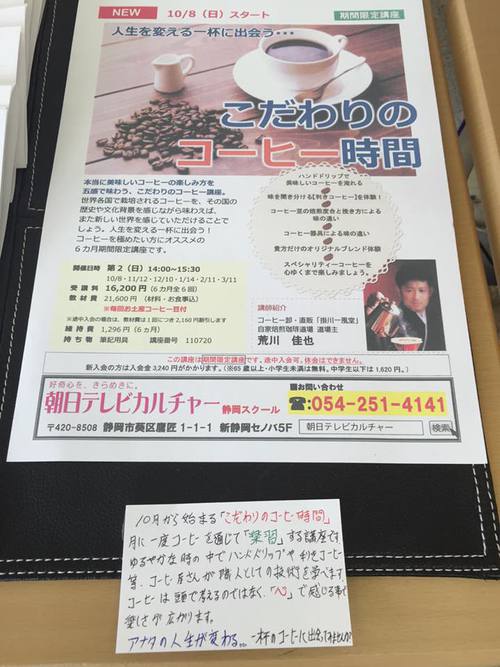 NEW 10/8（日）スタート 期間限定講座
人生を変える一杯に出会う・・・
こだわりの
コーヒー時間
本当に美味しいコーヒーの楽しみ方を
五感で味わう、こだわりのコーヒー講座。
世界各国で栽培されるコーヒーを、その国の
歴史や文化背景を感じながら味わえば、
また新しい世界を感じていただけることで
しょう。人生を変える一杯に出会う！
コーヒーを極めたい方にオススメの
６カ月期間限定講座です。
ハンドドリップで
美味しいコーヒーを淹れる
味を聞き分ける【利きコーヒー】を体験！
コーヒー豆の焙煎度合と挽き方による
味の違い
コーヒー器具による味の違い
貴方だけのオリジナルブレンド体験
スペシャリティーコーヒーを
心ゆくまで楽しみましょう。
開講日時 第２（日）14:00～15:30
10/8・11/12・12/10・1/14・2/11・3/11
受講料 16,200円（6カ月全６回）
教材費 21,600円（材料・お食事込）
※毎回お土産コーヒー豆付
※途中入会の場合は、教材費は１回につき2,160円割引します
維持費 1,296円（6ヵ月）
持ち物 筆記用具 講座番号 110720
講師紹介
コーヒー卸・直販「掛川一風堂」
自家焙煎珈琲道場 道場主
荒川 佳也
この講座は期間限定講座です。途中入会可。休会はできません。
新入会の方は入会金3,240円がかかります。（※65歳以上・小学生未満は無料。中学生以下は1,620円。）
好奇心を、きらめきに。
朝日テレビカルチャー 静岡スクール
■お問い合わせ
☎:054-251-4141
〒420-8508 静岡市葵区鷹匠1-1-1 新静岡セノバ5F 朝日テレビカルチャー 検索
10月から始まる「こだわりのコーヒー時間」
月に一度コーヒーを通じて「楽習」する講座です
ゆるやかな時の中でハンドドリップや利きコーヒー
等、コーヒー屋さんが隣人としての技術を学べます
コーヒーは頭で考えるのではなく、「心」で感じる事で
楽しさが広がります。
アナタの人生が変わる。。一杯のコーヒーに出会ってみませんか?